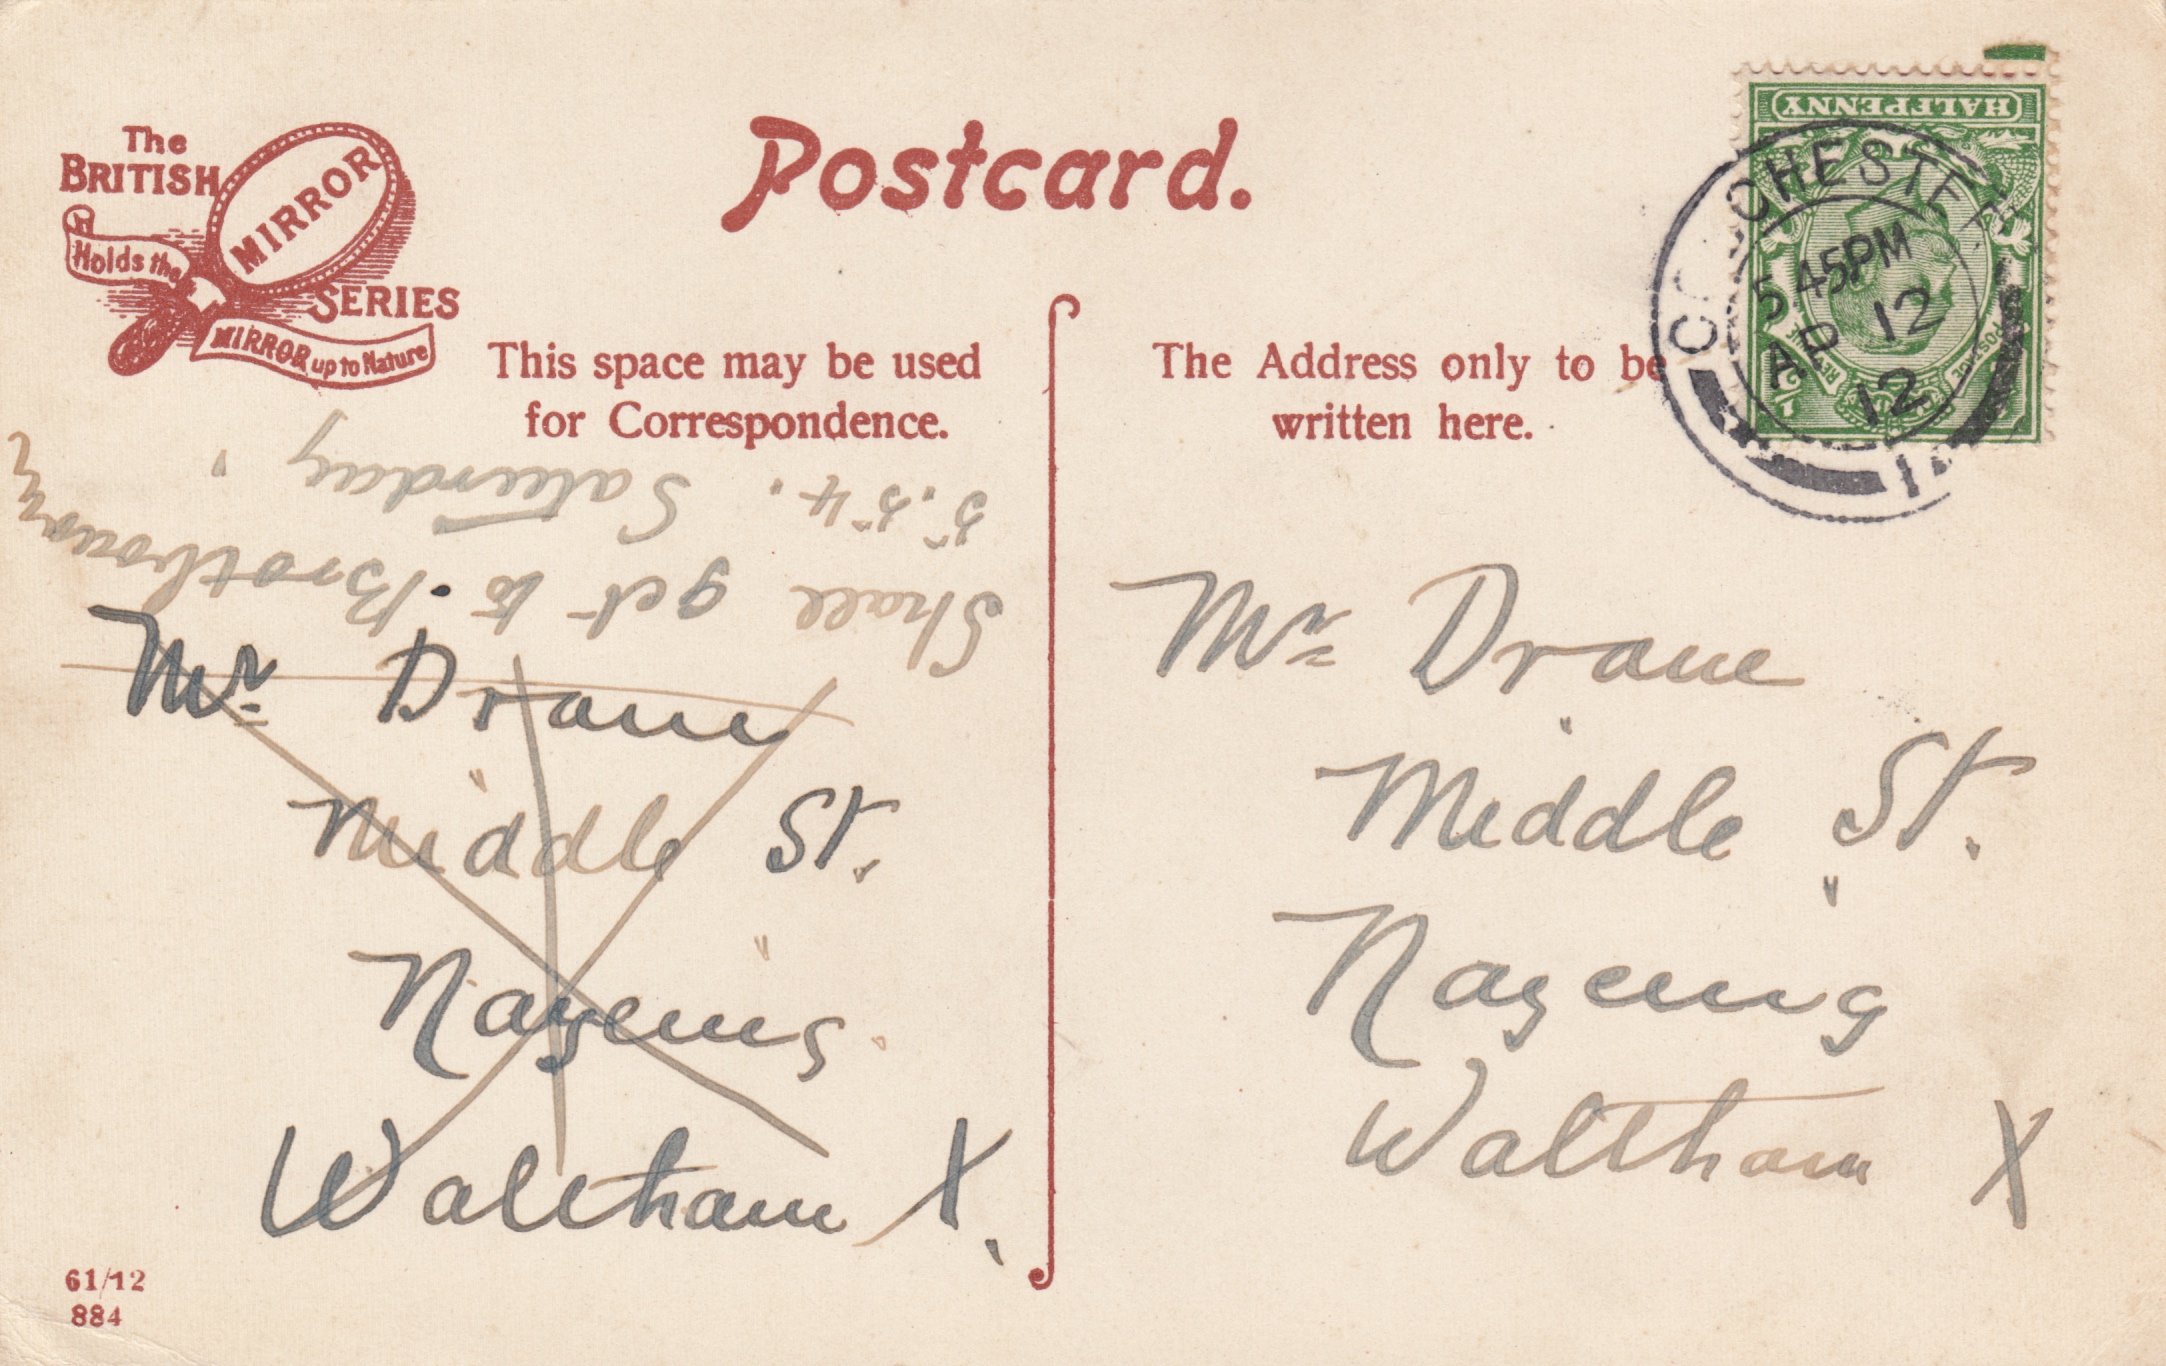 The
BRITISH
MIRROR
SERIES
Holds the
MIRROR up to Nature
Postcard.
This space may be used
for Correspondence.
The Address only to be
written here.
HALFPENNY
POSTAGE
COLCHESTER
5 45PM
AP 12
12
Shall get to Broxbourne
5.54. Saturday
Mr Drane
Middle St.
Nazeing
Waltham X.
Mr Drane
Middle St.
Nazeing
Waltham X
61/12
884